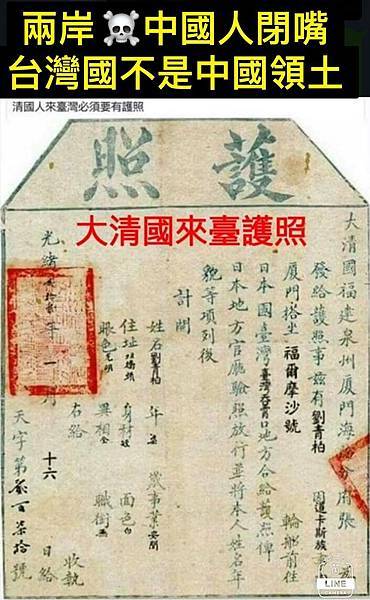 兩岸☠️中國人閉嘴
台灣國不是中國領土
清國人來臺灣必須要有護照
護照
大清國來臺護照
大清國福建泉州廈門海
分府張 為
發給護照事茲有劉青柏
廈門搭坐福爾摩沙號 輪船前往
日本國臺灣 口地方合給護照俾
日本地方官廳驗照放行並將本人姓名年
貌等項列後
計開
姓名劉青柏 年 歲事業
住址 身材 面色白
眼色 異相 職銜
右給 收執
光緒 年 一 月 十六 日給
天字第 百 號
LINE
CAMERA